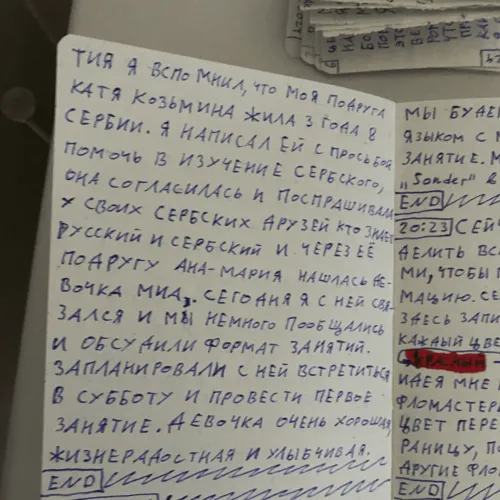 ТИЯ Я ВСПОМНИЛ, ЧТО МОЯ ПОДРУГА
КАТЯ КОЗЬМИНА ЖИЛА 3 ГОДА В
СЕРБИИ. Я НАПИСАЛ ЕЙ С ПРОСЬБОЙ
ПОМОЧЬ В ИЗУЧЕНИЕ СЕРБСКОГО,
ОНА СОГЛАСИЛАСЬ И ПОСПРАШИВАЛА
У СВОИХ СЕРБСКИХ ДРУЗЕЙ КТО ЗНАЕТ
РУССКИЙ И СЕРБСКИЙ И ЧЕРЕЗ ЕЁ
ПОДРУГУ АНА-МАРИЯ НАШЛАСЬ ДЕ-
ВОЧКА МИА. СЕГОДНЯ Я С НЕЙ СВЯ-
ЗАЛСЯ И МЫ НЕМНОГО ПООБЩАЛИСЬ
И ОБСУДИЛИ ФОРМАТ ЗАНЯТИЙ.
ЗАПЛАНИРОВАЛИ С НЕЙ ВСТРЕТИТЬСЯ
В СУББОТУ И ПРОВЕСТИ ПЕРВОЕ
ЗАНЯТИЕ. ДЕВОЧКА ОЧЕНЬ ХОРОШАЯ,
ЖИЗНЕРАДОСТНАЯ И УЛЫБЧИВАЯ.
END
МЫ БУДЕ
ЯЗЫКОМ С
ЗАНЯТИЕ. М
„Sonder" в
END
20:23 СЕЙЧ
ДЕЛИТЬ ВС
МИ, ЧТОБЫ
МАЦИЮ. СЕ
ЗДЕСЬ ЗАПИ
КАЖДЫЙ ЦВЕ
ИДЕЯ МНЕ
ФЛОМАСТЕР
ЦВЕТ ПЕРЕ
РАНИЦУ, ПО
ДРУГИЕ ФЛО
END